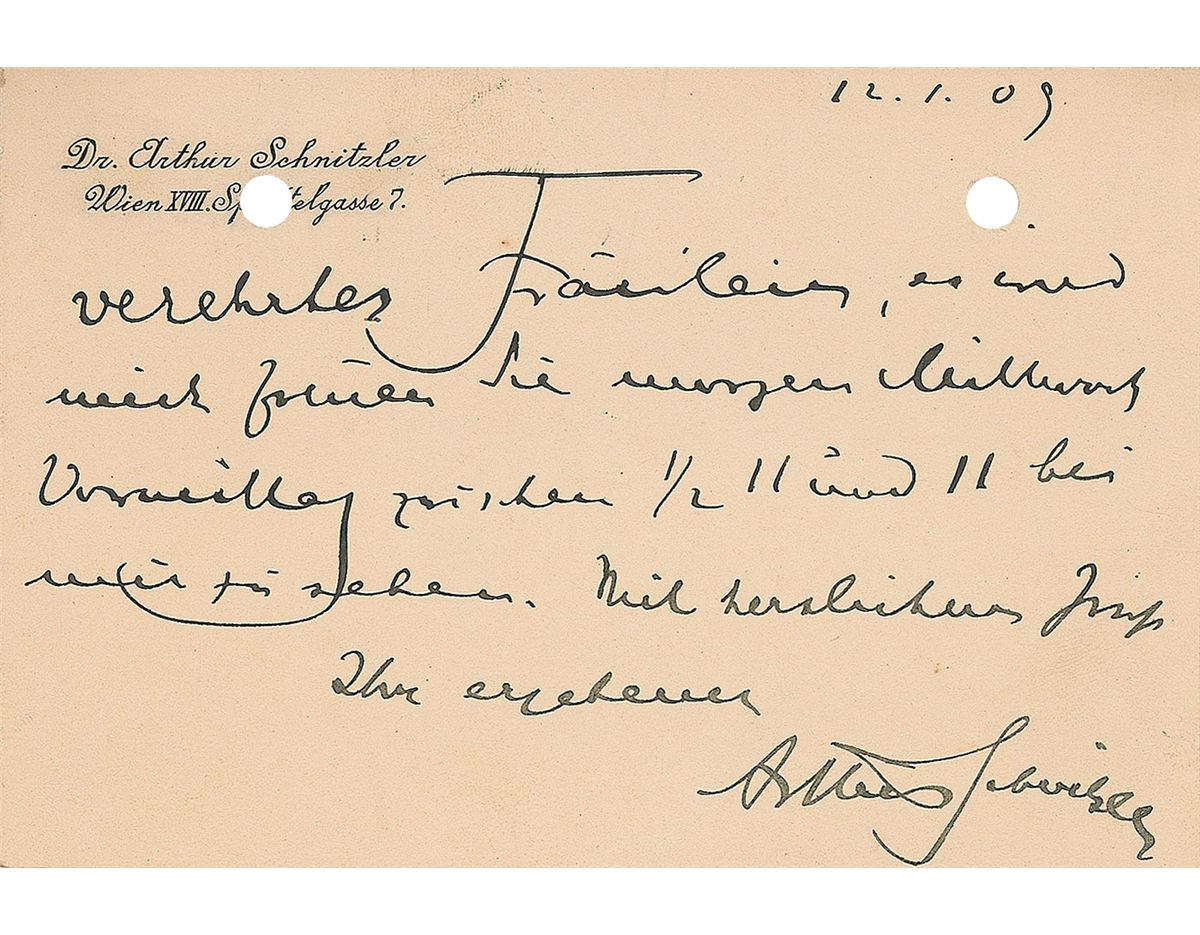 12. 1. 09
Dr. Arthur Schnitzler
Wien XVIII. Sp ttelgasse 7.
verehrtes Fräulein, es wird
mich freuen Sie morgen Mittwoch
Vormittag zwischen 1/2 11 und 11 bei
mir zu sehen. Mit herzlichem Gruß
Ihr ergebener
Arthur Schnitzler